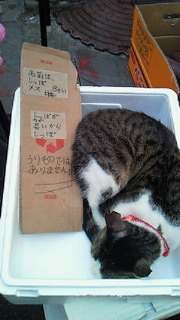 名前は、
しっぽ
メス 8さい
しっぽが
長いから
しっぽ
うりものでは
ありません。